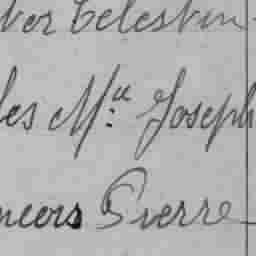 ber Celestin
les M.a Joseph
ncois Pierre